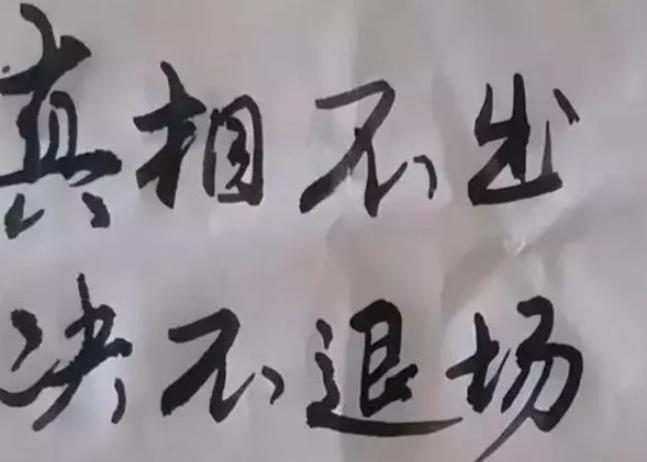 真相不出
决不退场